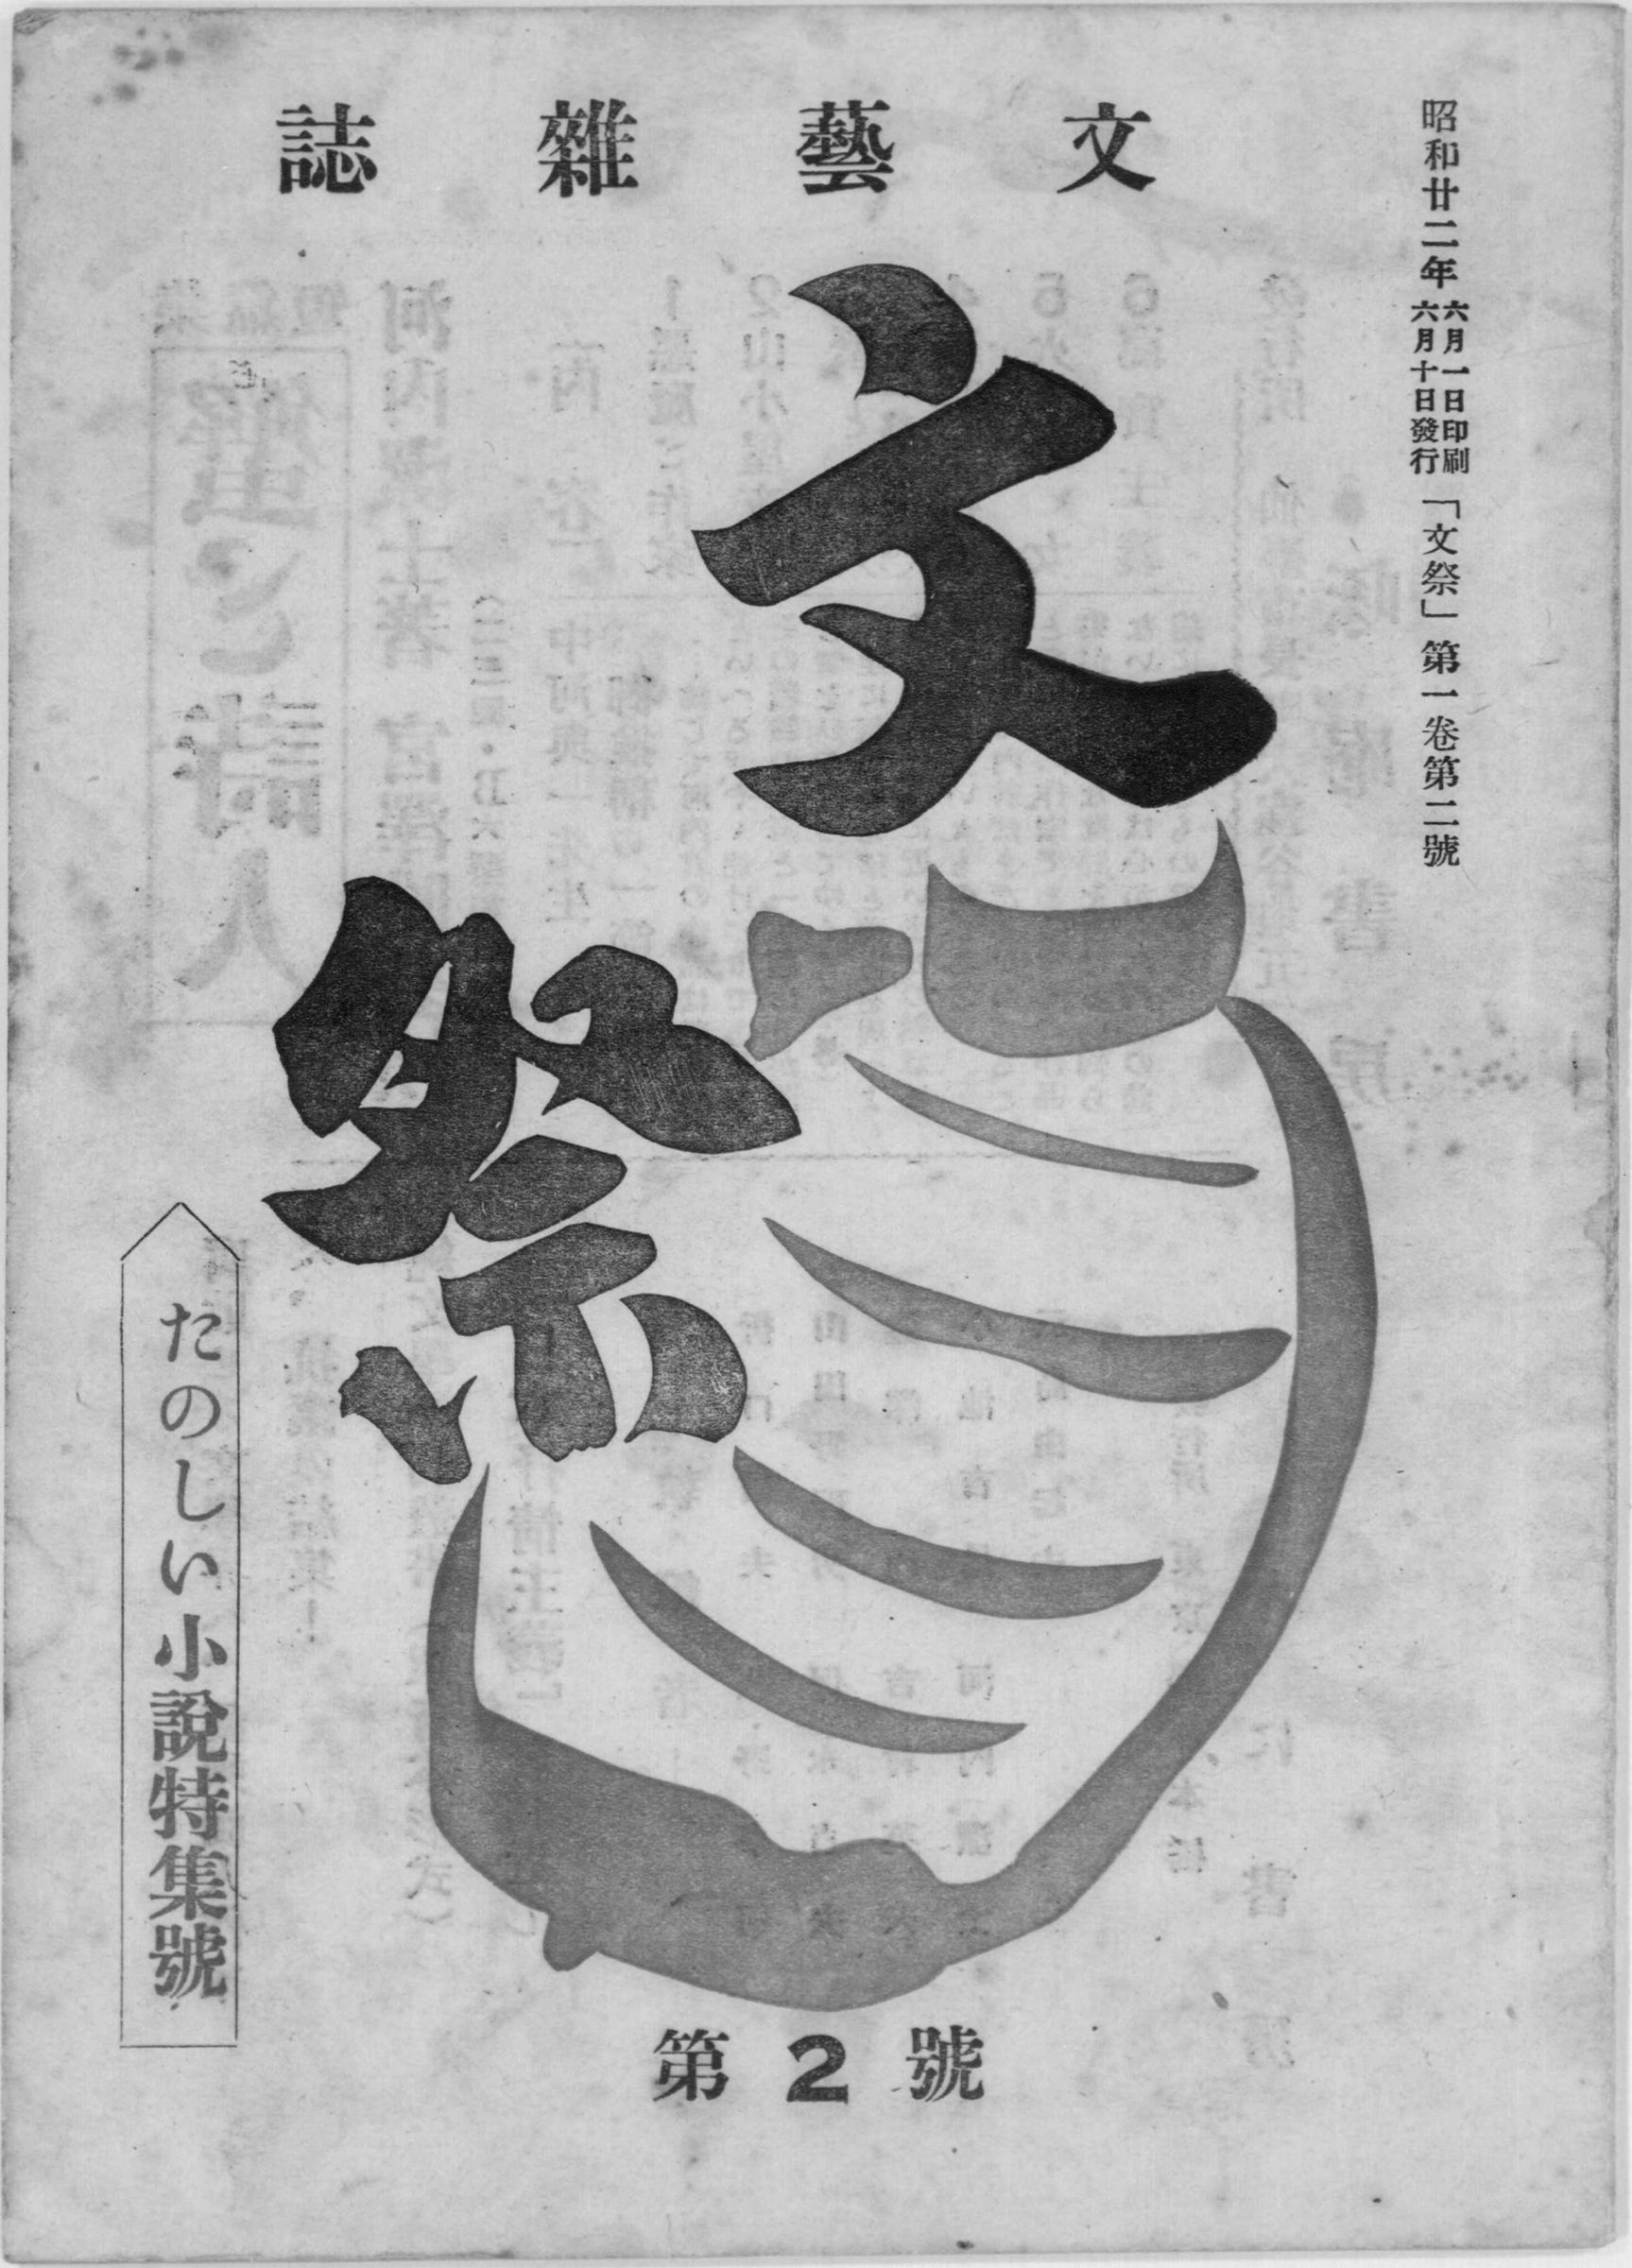 文藝雜誌
昭和廿二年六月一日印刷六月十日發行「文祭」第一卷第二號
文祭
たのしい小說特集號
第2號